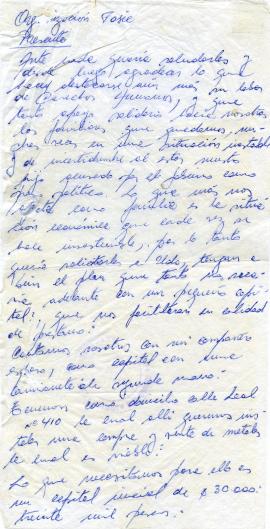 Organización Fasic
Presente
Ante todo quería saludarles y
desde luego agradecer lo que
hacen destacarse aún más su labor
de Derechos Humanos, y que
tanto apoyo solidario hacia nosotros
los familiares que quedamos,
en una situación inestable
y de incertidumbre al estar nuestro
hijo acusado por el como
preso político lo que más nos
afecta como familia es la situa-
ción económica que cada vez se
hace insostenible, por lo tanto
quería solicitarle a Uds, tengan a
bien el plan que tanto nos
adelante con un pequeño capi-
tal, que nos facilitaran en calidad
de préstamo.
Contamos nosotros con mi compañero
esposo, como capital con una
camioneta de segunda mano.
Tenemos como domicilio calle Leal
nº 410 la cual allí queremos ins-
talar una compra y venta de metales
la cual es viable.
Lo que necesitamos para ello es
un capital inicial de $ 30.000.-
treinta mil pesos.-